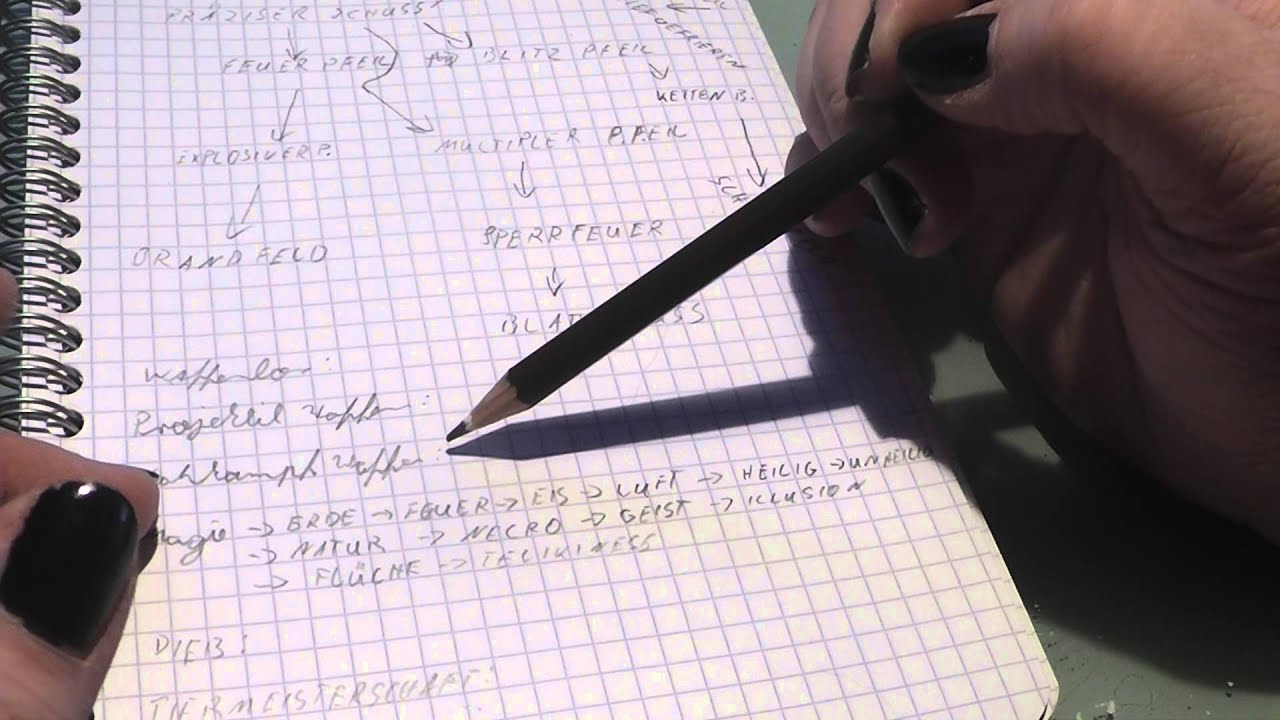 PRÄZISER SCHUSS
FEUER PFEIL BLITZ PFEIL
KETTEN B.
EXPLOSIVER P. MULTIPLER PFEIL
SCH
SPERRFEUER
BRANDFELD
waffenlos:
Projektil waffen:
waffen:
Magie → ERDE → FEUER → EIS → LUFT → HEILIG → UNHEILIG
→ NATUR → NECRO → GEIST → ILLUSION
→ FLÜCHE → TELIKINESS
DIEB:
TIERMEISTERSCHAFT: